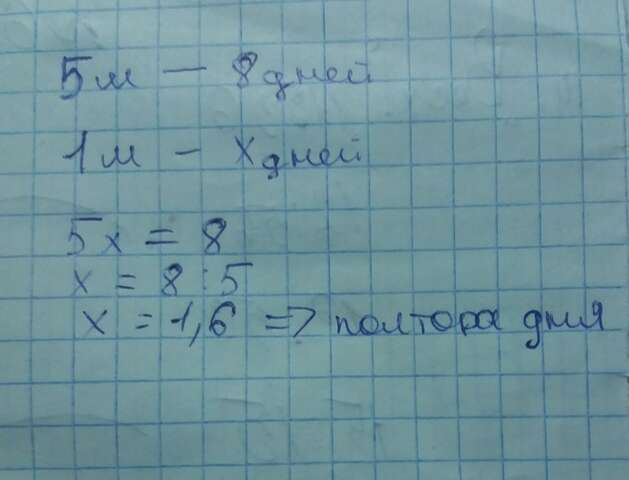 5м — 8 дней
1м – х дней
5х = 8
х = 8 : 5
х = 1,6 => полтора дня